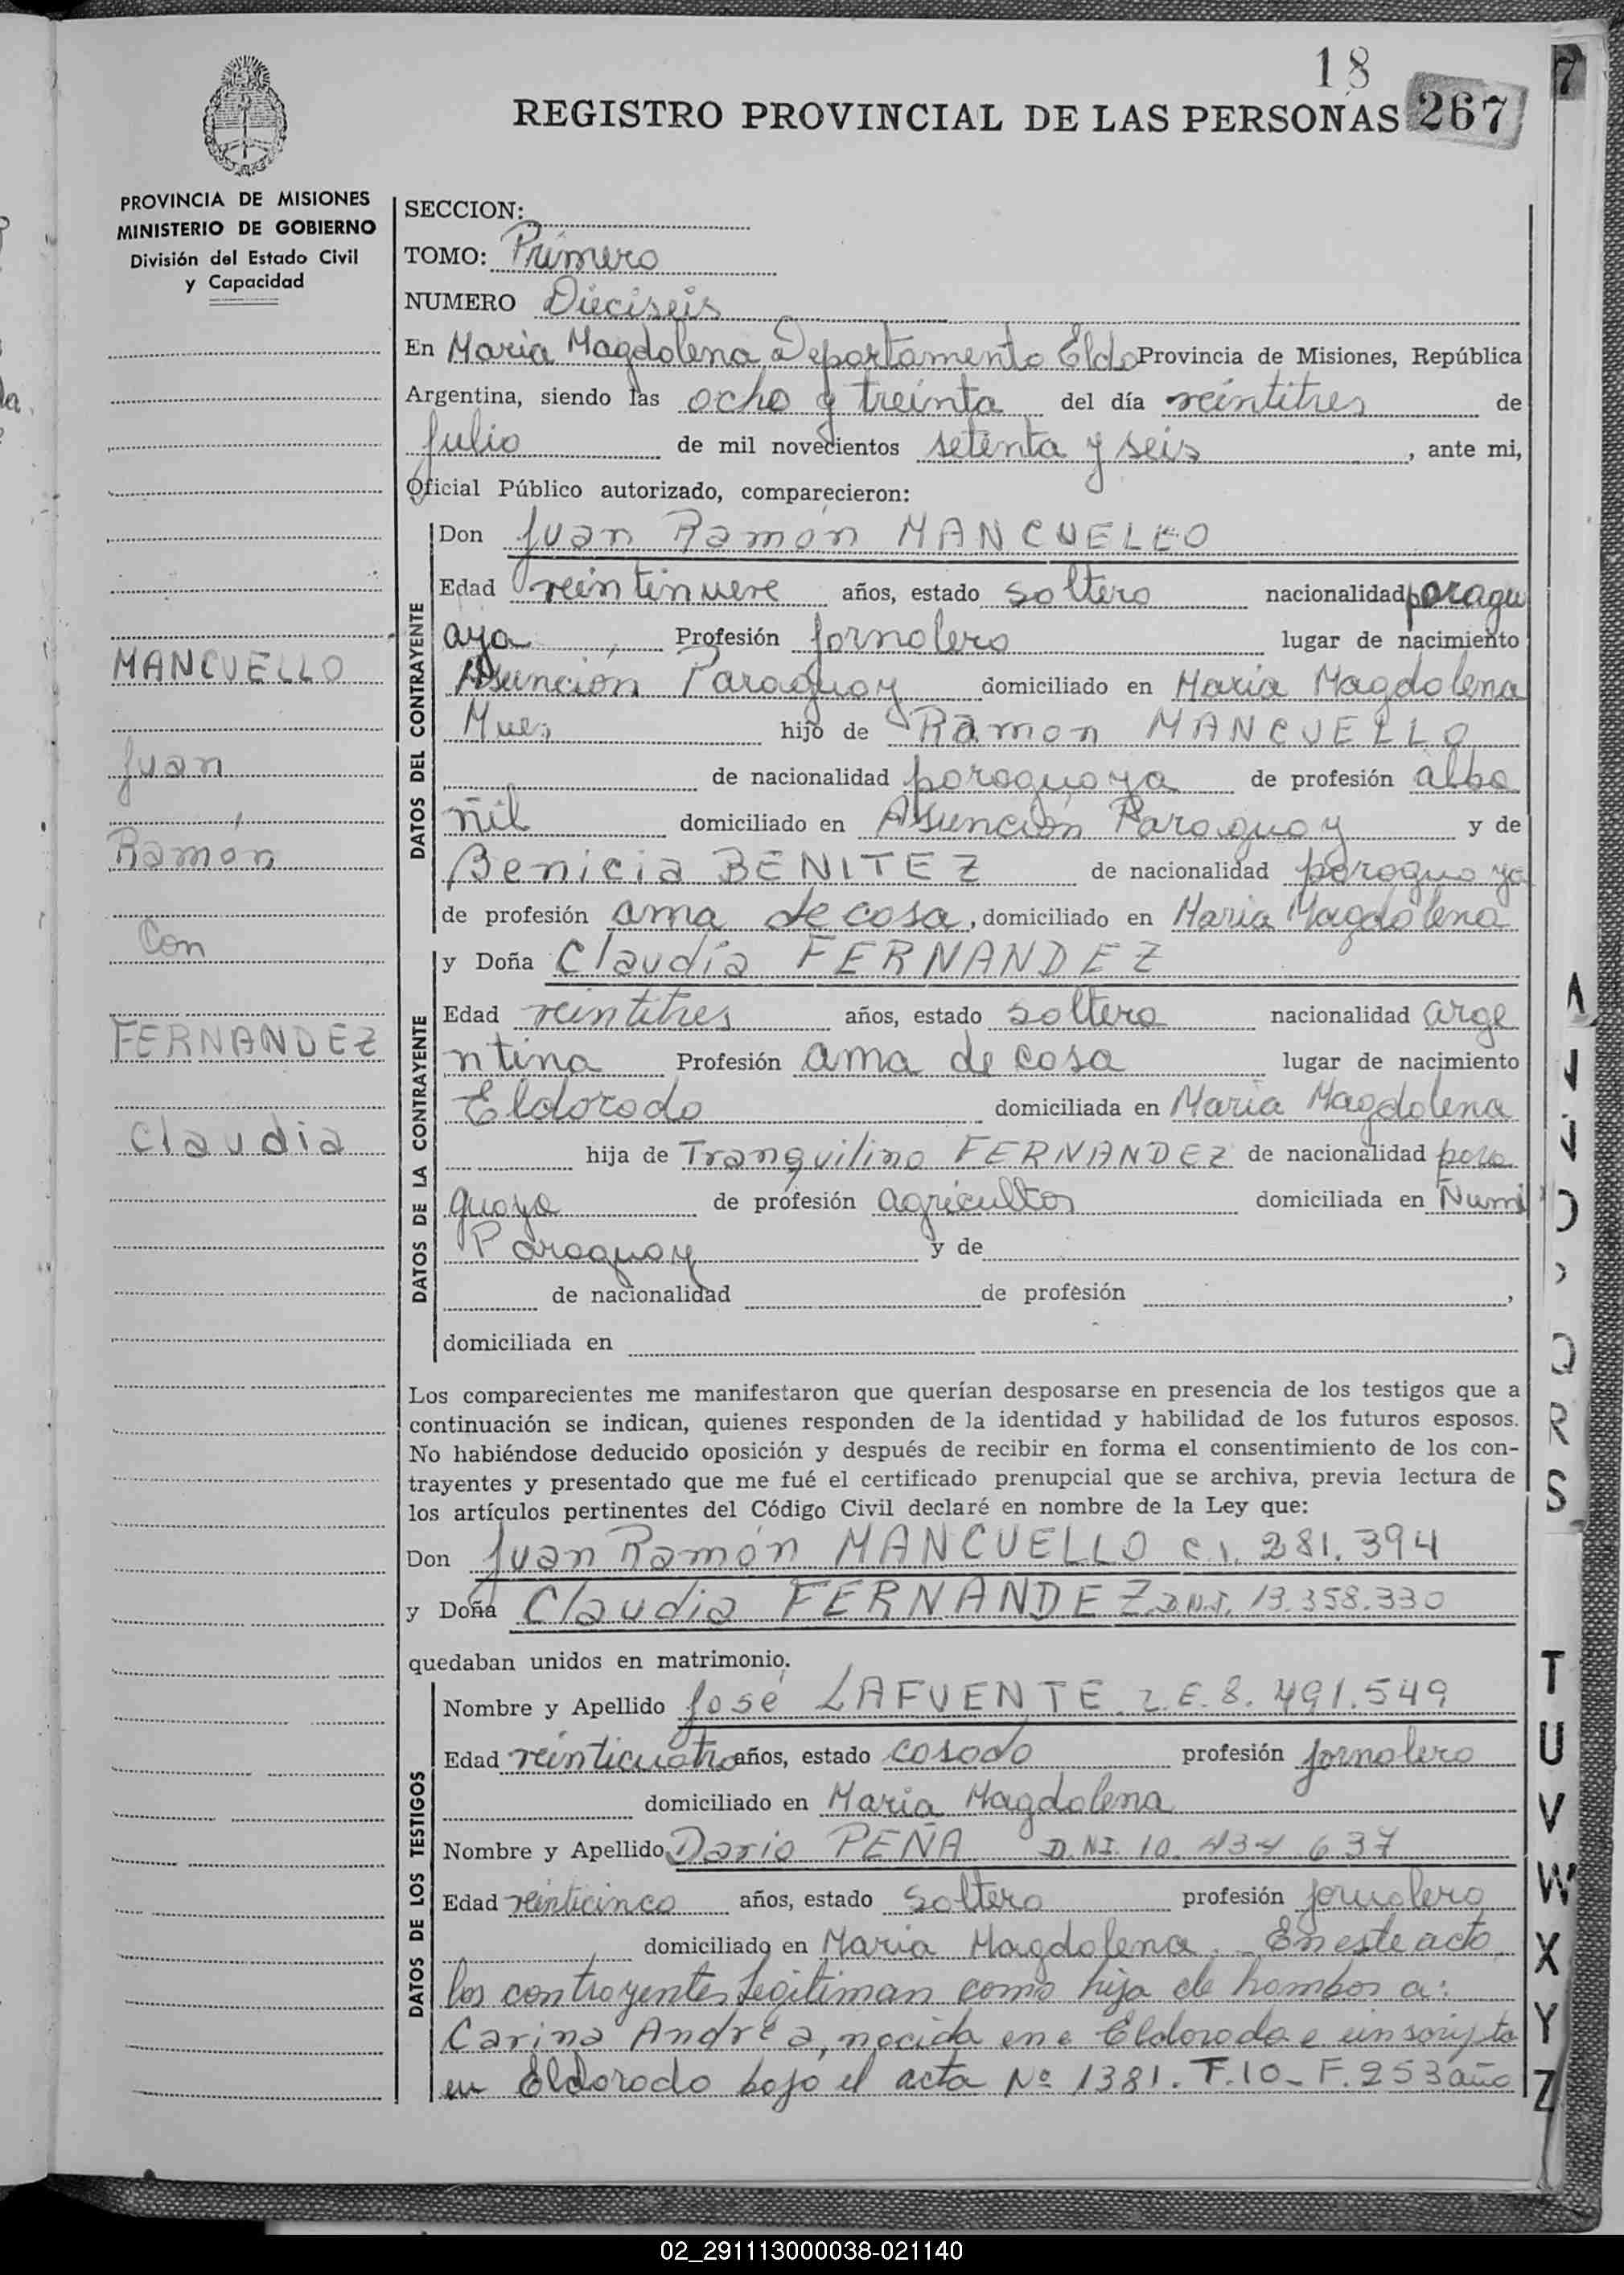 18
REGISTRO PROVINCIAL DE LAS PERSONAS 267
7
PROVINCIA DE MISIONES
MINISTERIO DE GOBIERNO
División del Estado Civil
y Capacidad
MANCUELLO
Juan
Ramón
Con
FERNANDEZ
Claudia
SECCION:
TOMO: Primero
NUMERO Dieciseis
En Maria Magdalena Departamento Eldo Provincia de Misiones, República
Argentina, siendo las ocho y treinta del día veintitres de
Julio de mil novecientos setenta y seis, ante mi,
Oficial Público autorizado, comparecieron:
DATOS DEL CONTRAYENTE
Don Juan Ramón MANCUELLO
Edad veintinueve años, estado soltero nacionalidad paragu
aya Profesión Jornalero lugar de nacimiento
Asunción Paraguay domiciliado en Maria Magdalena
hijo de Ramón MANCUELLO
de nacionalidad paraguaya de profesión alba
ñil domiciliado en Asunción Paraguay y de
Benicia BENITEZ de nacionalidad paraguaya
de profesión ama de casa, domiciliado en Maria Magdalena
DATOS DE LA CONTRAYENTE
y Doña Claudia FERNANDEZ
Edad veintitres años, estado soltera nacionalidad arge
ntina Profesión ama de casa lugar de nacimiento
Eldorado domiciliada en Maria Magdalena
hija de Tranquilino FERNANDEZ de nacionalidad para
guaya de profesión agricultor domiciliada en Ñumi
Paraguay y de
de nacionalidad de profesión ,
domiciliada en
Los comparecientes me manifestaron que querían desposarse en presencia de los testigos que a
continuación se indican, quienes responden de la identidad y habilidad de los futuros esposos.
No habiéndose deducido oposición y después de recibir en forma el consentimiento de los con-
trayentes y presentado que me fué el certificado prenupcial que se archiva, previa lectura de
los artículos pertinentes del Código Civil declaré en nombre de la Ley que:
Don Juan Ramón MANCUELLO C.I. 281.394
y Doña Claudia FERNANDEZ D.N.I. 13.358.330
quedaban unidos en matrimonio.
DATOS DE LOS TESTIGOS
Nombre y Apellido José LAFUENTE L.E. 8.491.549
Edad veinticuatro años, estado casado profesión Jornalero
domiciliado en Maria Magdalena
Nombre y Apellido Dario PEÑA D.NI. 10.434.637
Edad veinticinco años, estado soltero profesión Jornalero
domiciliado en Maria Magdalena. En este acto
los contrayentes Legitiman como hija de hambos a:
Carina Andréa, nacida en Eldorado e inscripta
en Eldorado bajo el acta Nº 1381. T.10 - F. 253 año
R
S
T
U
V
W
X
Y
Z
02_291113000038-021140